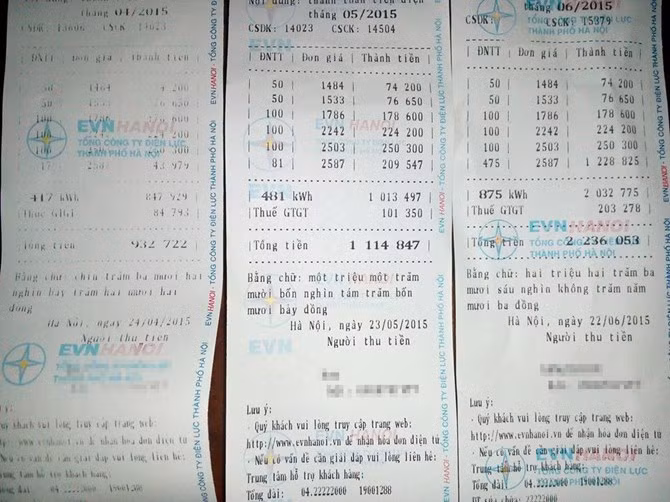 tháng 04/2015
CSCK 14023
ĐNTT | Đơn giá | Thành tiền
50 | 1464
50
100
43 979
417 kWh 847 929
Thuế GTGT 84 793
Tổng tiền 932 722
Bằng chữ: chín trăm ba mươi hai
nghìn bảy trăm hai mươi hai
đồng
Hà Nội, ngày 24/04/2015
Người thu tiền
EVNHANOI
TỔNG CÔNG TY ĐIỆN LỰC
THÀNH PHỐ HÀ NỘI
Lưu ý:
Quý khách vui lòng truy cập trang web:
http://www.evnhanoi.vn để nhận hóa đơn điện tử
Nếu có vấn đề cần giải đáp vui lòng liên hệ:
Trung tâm hỗ trợ khách hàng:
Tổng đài: 04.22222000 19001288
EVNHANOI - TỔNG CÔNG TY ĐIỆN LỰC THÀNH PHỐ HÀ NỘI
tháng 05/2015
CSĐK: 14023 CSCK: 14504
| ĐNTT | Đơn giá | Thành tiền |
| 50 | 1484 | 74 200 |
| 50 | 1533 | 76 650 |
| 100 | 1786 | 178 600 |
| 100 | 2242 | 224 200 |
| 100 | 2503 | 250 300 |
| 81 | 2587 | 209 547 |
| 481 kWh 1 013 497 |
|Thuế GTGT 101 350 |
|Tổng tiền 1 114 847 |
Bằng chữ: một triệu một trăm
mười bốn nghìn tám trăm bốn
mươi bảy đồng
Hà Nội, ngày 23/05/2015
Người thu tiền
Lưu ý:
Quý khách vui lòng truy cập trang web:
http://www.evnhanoi.vn để nhận hóa đơn điện tử
Nếu có vấn đề cần giải đáp vui lòng liên hệ:
Trung tâm hỗ trợ khách hàng:
Tổng đài: 04.22222000 19001288
EVNHANOI - TỔNG CÔNG TY ĐIỆN LỰC THÀNH PHỐ HÀ NỘI
tháng 06/2015
CSCK: 15379
| ĐNTT | Đơn giá | Thành tiền |
| 50 | 1484 | 74 200 |
| 50 | 1533 | 76 650 |
| 100 | 1786 | 178 600 |
| 100 | 2242 | 224 200 |
| 100 | 2503 | 250 300 |
| 475 | 2587 | 1 228 825 |
| 875 kWh 2 032 775 |
|Thuế GTGT 203 278 |
|Tổng tiền 2 236 053 |
Bằng chữ: hai triệu hai trăm ba
mươi sáu nghìn không trăm năm
mươi ba đồng
Hà Nội, ngày 22/06/2015
Người thu tiền
Lưu ý:
Quý khách vui lòng truy cập trang web:
http://www.evnhanoi.vn để nhận hóa đơn điện tử
Nếu có vấn đề cần giải đáp vui lòng liên hệ:
Trung tâm hỗ trợ khách hàng:
Tổng đài: 04.22222000 19001288